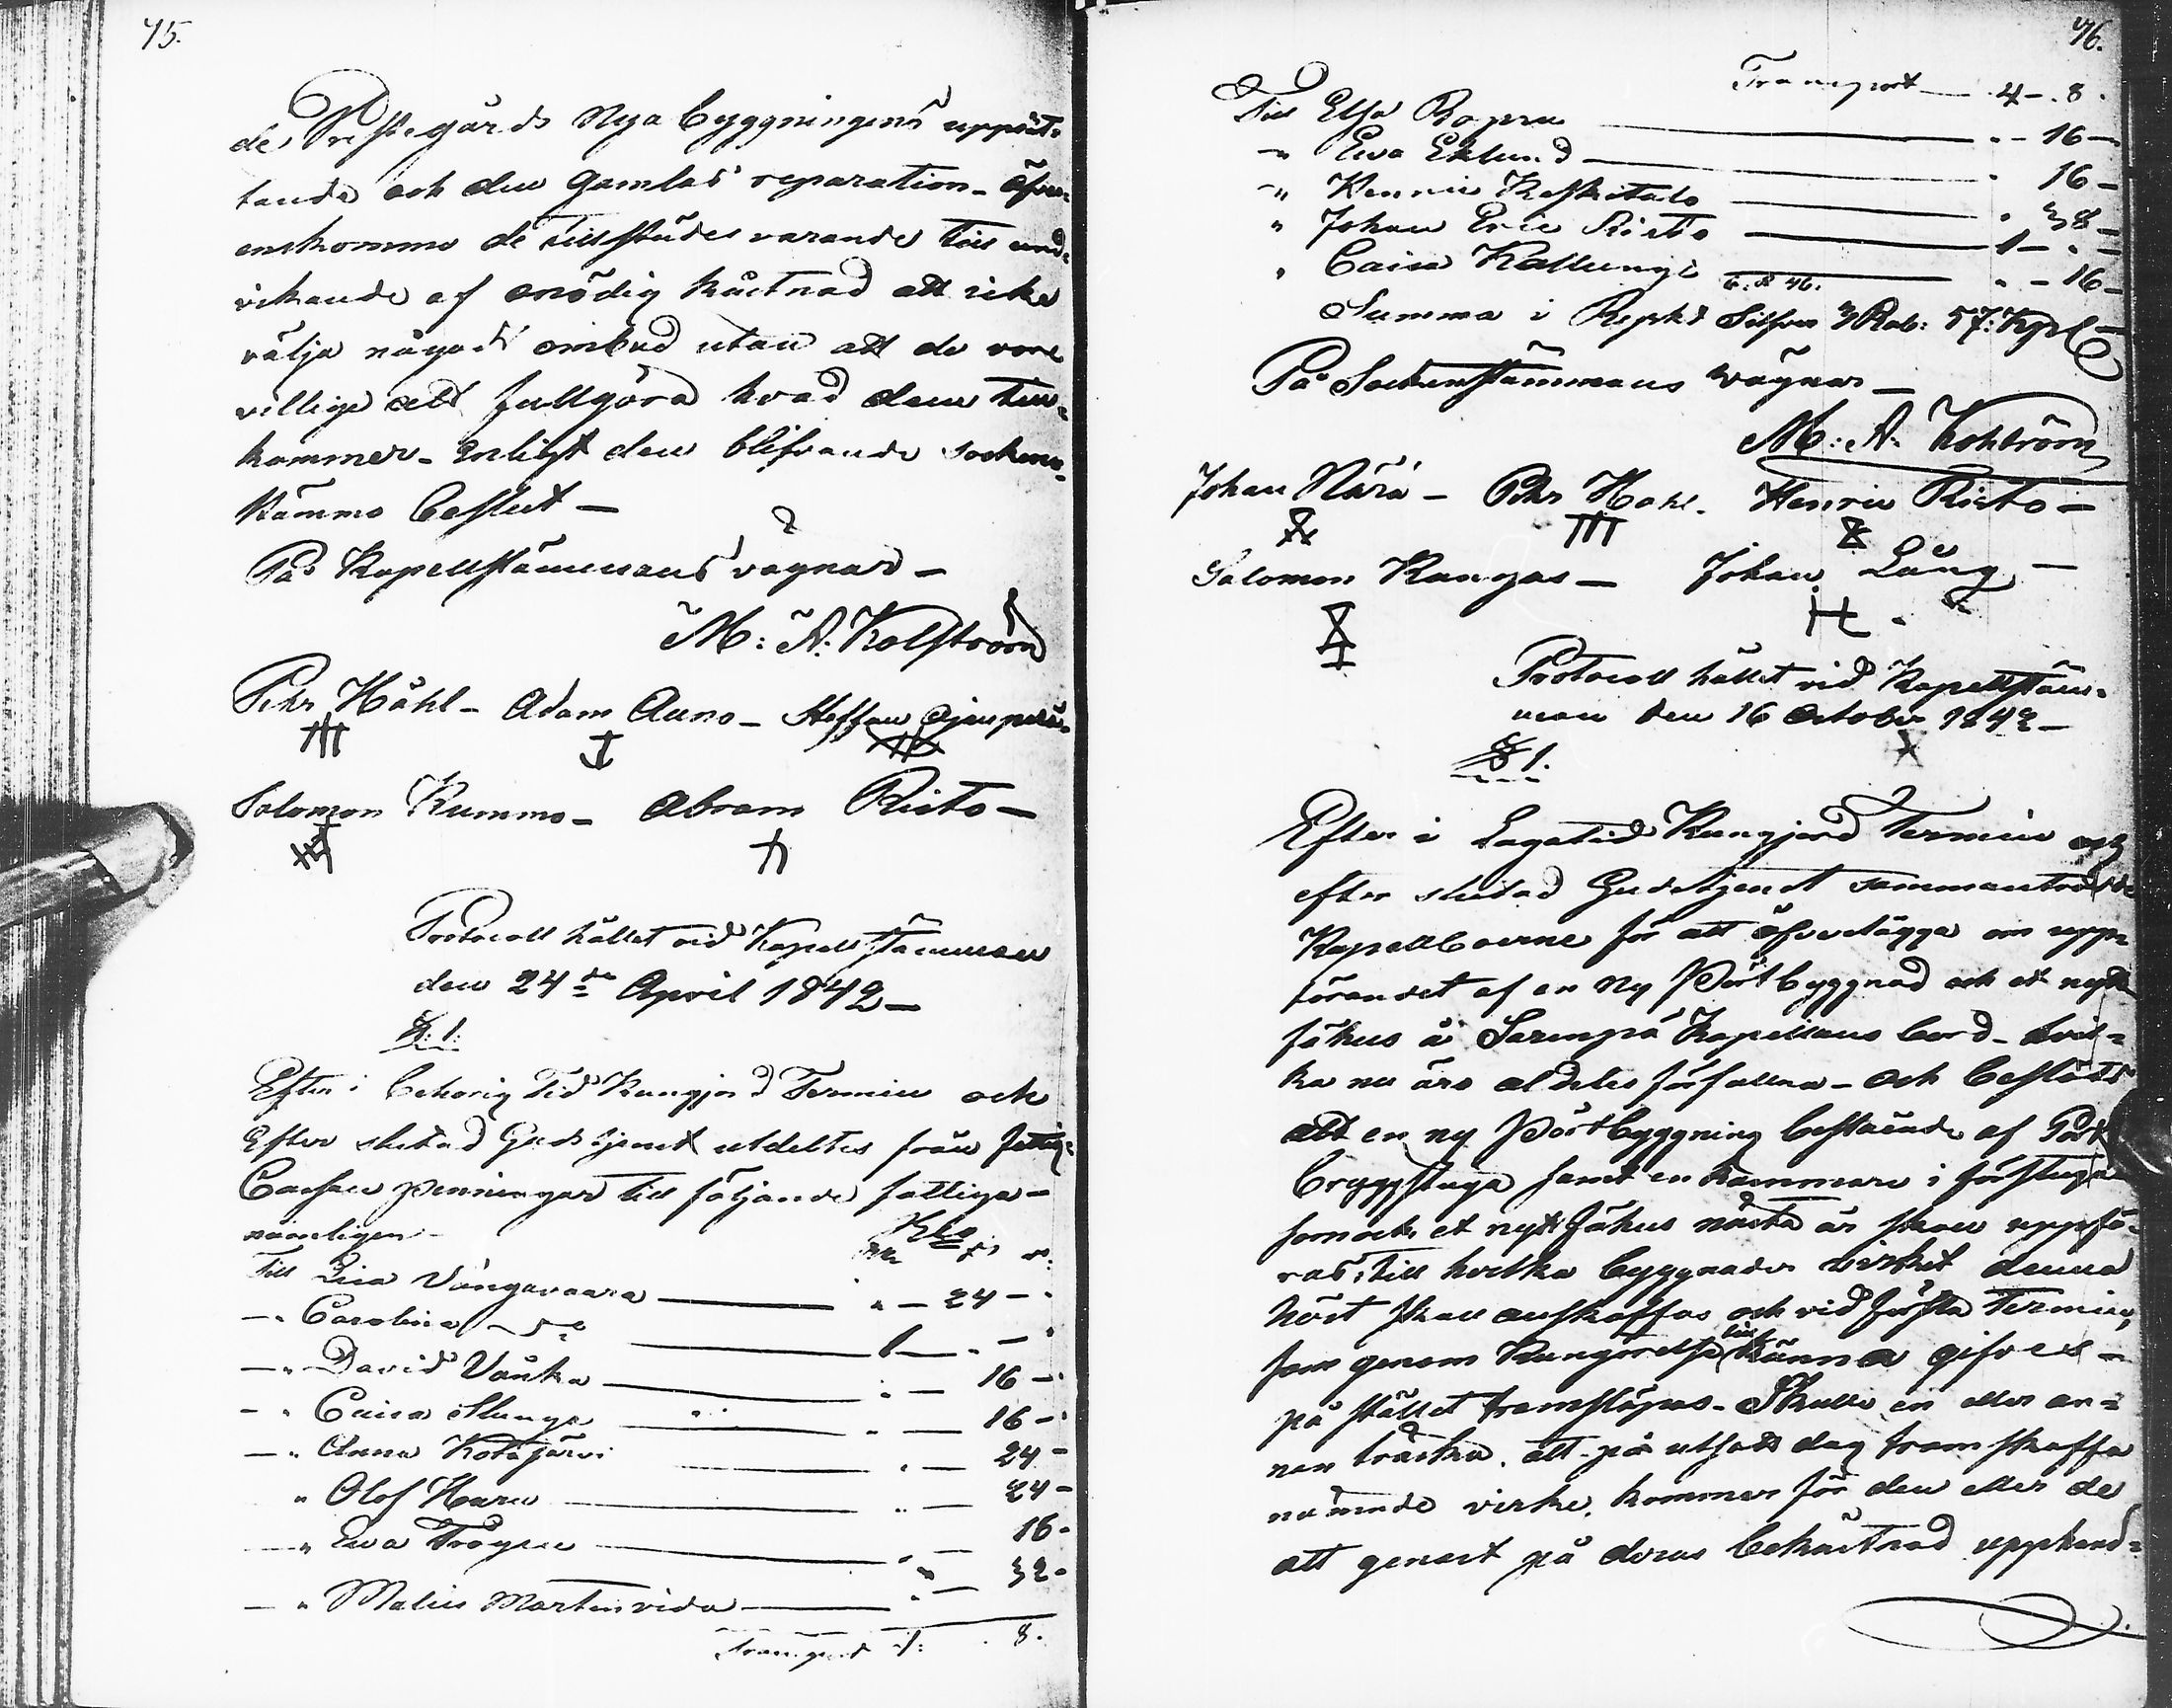 75.
de Prestegårds Nya byggningens upprät-
tande och den gamlas reparation - öfver-
enskommo de tillstädes varande till und-
vikande af onödig kåstnad att icke
välja något ombud utan att de vore
villige att fullgöra hvad dem till-
kommer - enligt den blifvande socken-
stämmo beslut -
På Kapellstämmans vägnar -
M: A: Kolström
Pehr Håhl - Adam Auno - Staffan
Salomon Kummo - Abram Risto -
Protocoll hållet vid Kapellstämman
den 24de April 1842 -
§. 1.
Efter i behörig tid Kungjord Termin och
Efter slutad Gudstjenst utdeltes från fattig-
Cassan penningar till följande fattiga -
nämligen -
Till Lisa Vångavaara — " — 24 -
— " Carolina — 1 — " —
— " David Vånka — " — 16 -
— " Caisa Slunga — " — 16 -
— " Anna Kotajärvi — " — 24 -
" Olof Haru — " — 24 -
— " Ewa Tröger — " — 16 -
— " Malin Martinvida — " — 32 -
Transport 4: 8.
76.
Transport — 4 - 8.
Till Elsa Ropra — " - 16 -
" Ewa Eklund — " 16 -
" Henric Koskitalo — " 38 -
" Johan Eric Risto — 1 - " -
" Caisa Kallunge — " - 16 -
Summa i Silfver 7 Rub: 57: Kop
På Sockenstämmans wägnar -
M: A: Kohlström
Johan Närä - Pehr Håhl - Henric Risto -
Salomon Kangas - Johan Lång -
Protocoll hållet vid Kapellstäm-
man den 16 October 1842 -
§ 1.
Efter i Lagatid Kungjord Termin och
efter slutad Gudstjenst sammanträdde
Kapellboerne för att öfverlägga om uppe
förandet af en Ny Pörtbyggnad och et nytt
fähus å Sarenpä Kapellans bord - hvil-
ka nu äro aldeles förfallna - och beslöts
att en ny Pörtbyggning bestående af Pört
bryggstuga samt en kammare i förstugan
som ock et nytt fähus nästa år skall uppfö-
ras, till hvilka byggnader virket denna
höst skall anskaffas och vid första Termin,
som genom Kungörelse till känna gifves -
på stället framsläpas - Skulle en eller an-
nan tråska, att på utsatt dag framskaffa
nämde virke, kommer för den eller de
att genast på deras bekåstnad upphand-